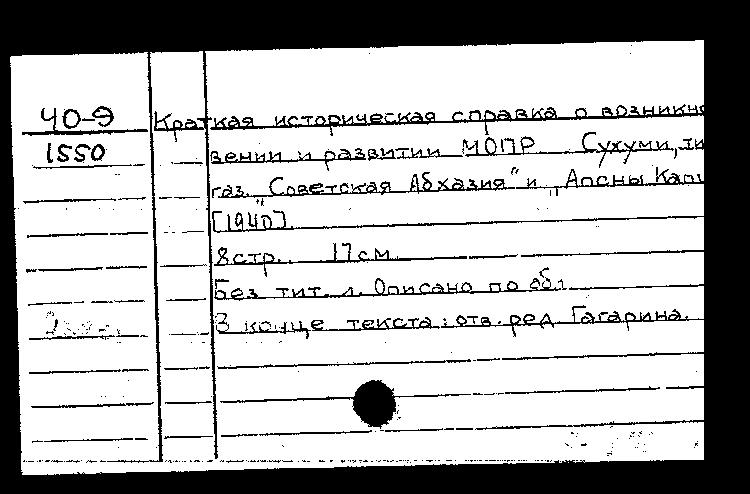 40-9
1550
Краткая историческая справка о возникно
вении и развитии МОПР. Сухуми, ти
газ. "Советская Абхазия" и "Апсны Капш
[1940].
8 стр. 17 см.
Без тит. л. Описано по обл.
В конце текста: отв. ред. Гагарина.